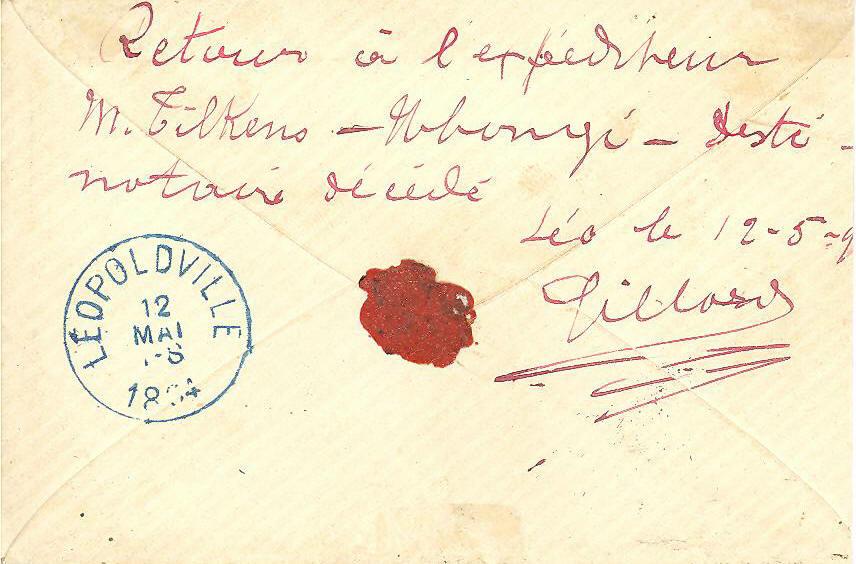 Retour à l'expéditeur
M. Tilkens – Ubangi – Desti-
nataire décédé
Léo le 12-5-9
Gillard
LÉOPOLDVILLE
12
MAI
-8
1894